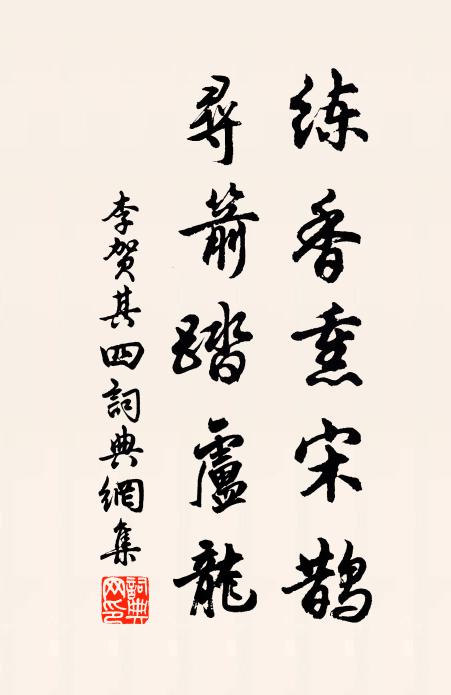 练香熏宋鹊
尋箭踏盧龍
李贺其四詞典網集
詞典网印